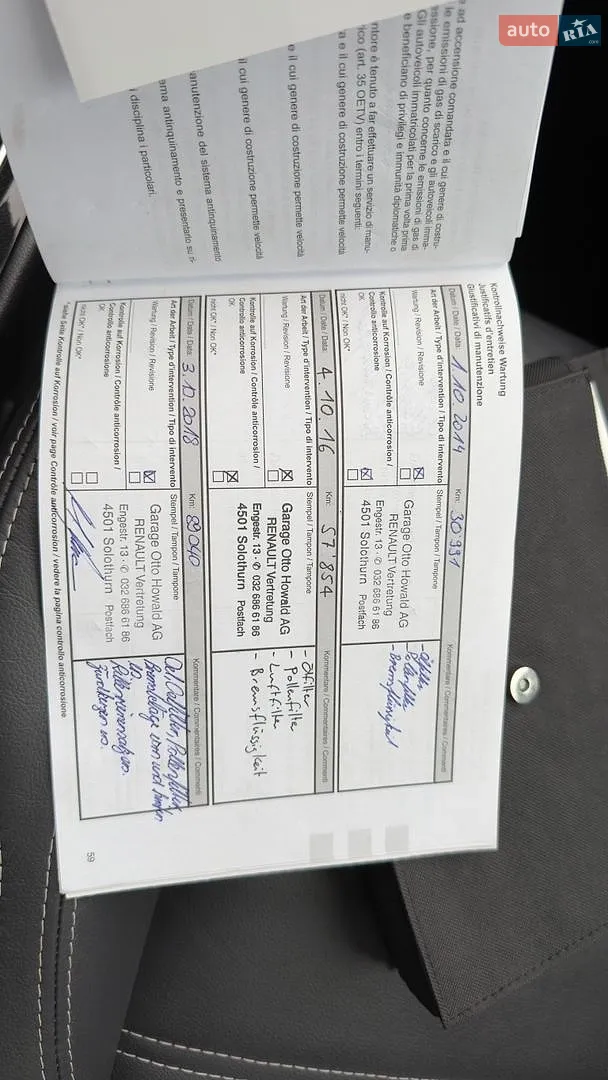 auto RIA .com
e ad accensione comandata e il cui genere di costru-
le emissioni di gas di scarico e gli autoveicoli imma-
essione, per quanto concerne le emissioni di gas di
Gli autoveicoli immatricolati per la prima volta prima
e beneficiano di privilegi e immunità diplomatiche o
ntore è tenuto a far effettuare un servizio di manu-
ico (art. 35 OETV) entro i termini seguenti:
a e il cui genere di costruzione permette velocità
e il cui genere di costruzione permette velocità
il cui genere di costruzione permette velocità
anutenzione del sistema antinquinamento
ema antinquinamento e presentarlo su ri-
i disciplina i particolari.
Kontrollnachweise Wartung
Justificatifs d'entretien
Giustificativi di manutenzione
Datum / Date / Data: 1.10.2014 Km: 30'991 Kommentare / Commentaires / Commenti
Art der Arbeit / Type d'intervention / Tipo di intervento Stempel / Tampon / Tampone
Wartung / Revision / Revisione
Kontrolle auf Korrosion / Contrôle anticorrosion /
Controllo anticorrosione
OK
nicht OK* / Non OK*
Garage Otto Howald AG
RENAULT Vertretung
Engestr. 13 · ✆ 032 686 61 86
4501 Solothurn Postfach
- Ölfilter
- Pollenfilter
- Bremsflüssigkeit
Datum / Date / Data: 4.10.16 Km: 57'854 Kommentare / Commentaires / Commenti
Art der Arbeit / Type d'intervention / Tipo di intervento Stempel / Tampon / Tampone
Wartung / Revision / Revisione
Kontrolle auf Korrosion / Contrôle anticorrosion /
Controllo anticorrosione
OK
nicht OK* / Non OK*
Garage Otto Howald AG
RENAULT Vertretung
Engestr. 13 · ✆ 032 686 61 86
4501 Solothurn Postfach
- Ölfilter
- Pollenfilter
- Luftfilter
- Bremsflüssigkeit
Datum / Date / Data: 3.10.2018 Km: 89040 Kommentare / Commentaires / Commenti
Art der Arbeit / Type d'intervention / Tipo di intervento Stempel / Tampon / Tampone
Wartung / Revision / Revisione
Kontrolle auf Korrosion / Contrôle anticorrosion /
Controllo anticorrosione
OK
nicht OK* / Non OK*
Garage Otto Howald AG
RENAULT Vertretung
Engestr. 13 · ✆ 032 686 61 86
4501 Solothurn Postfach
Pollenfilter
vorn und hinten
*siehe Seite Kontrolle auf Korrosion / voir page Contrôle anticorrosion / vedere la pagina controllo anticorrosione
59